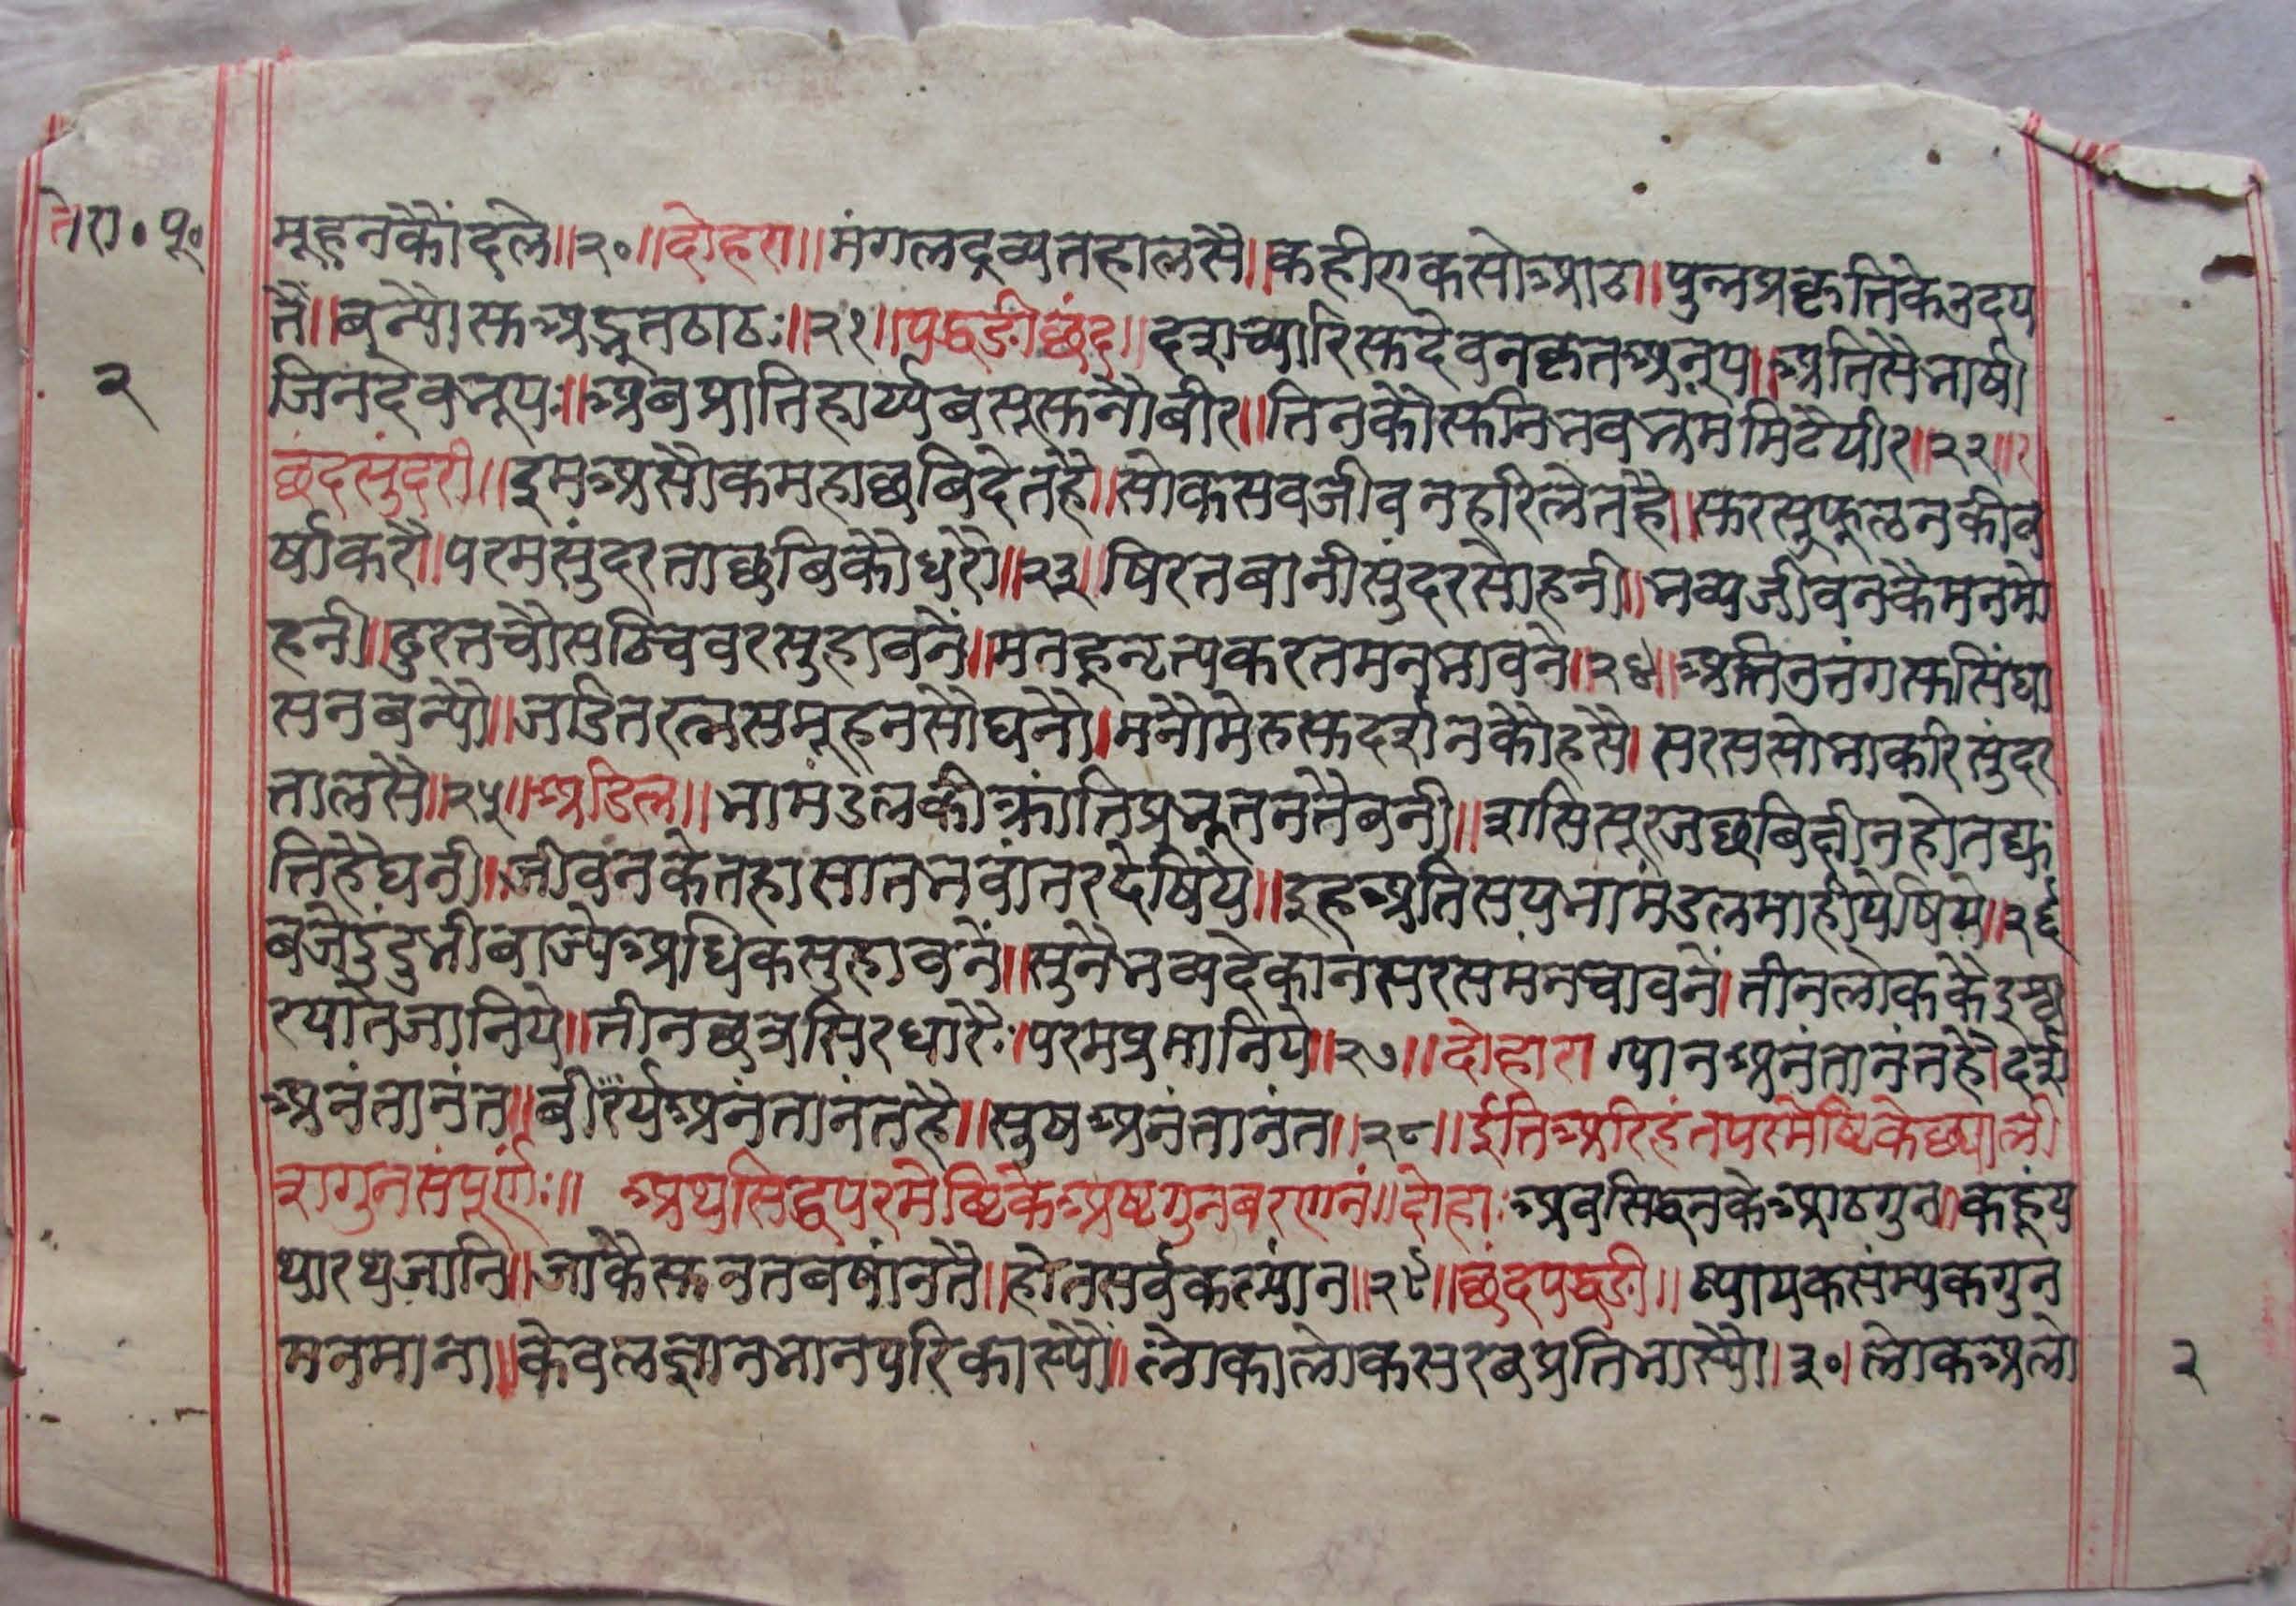 ते।रा॰पू॰
२
मूहनकौंदले॥२०॥दोहरा॥मंगलद्रव्यतहालसै॥कहीएकसोआठ॥पुन्यप्रकृतिकेउदय
तैं॥बन्यौसुअद्भुतठाठः॥२१॥पद्धडीछंद॥दशच्यारिसुदेवनकृतअनूप॥अतिसैभाषी
जिनदेवभूपः॥अबप्रातिहार्य्यबसूसुनौबीर॥तिनकौसुनिभवभ्रममिटैपीर॥२२॥
छंदसुंदरी॥द्रुमअसौकमहाछबिदेतहै॥सोकसवजीवनहरिलेतहै॥सुरसुफूलनकीव
र्षाकरै॥परमसुंदरताछबिकौधरै॥२३॥षिरतबानीसुंदरसोहनी॥भव्यजीवनकैमनमो
हनी॥ढुरतचौसठिचवरसुहावनें॥मनहुनृत्यकरतमनभावने॥२४॥अतिउतंगसुसिंघा
सनबन्यौ॥जडितरत्नसमूहनसौघनौ॥मनौमेरुसुदर्शनकौहसै।सरससोभाकरिसुंदर
तालसै॥२५॥अडिल॥भामंडलकीक्रांतिप्रभूतनतैबनी॥शसिसूरजछबिहीनहोतद्यु
तिहैघनी॥जीवनकेतहासातभवांतरदेषिये॥इहअतिसयभामंडलमाहीपेषिये॥२६
बजेदुंदुभीबाजेअधिकसुहावनें॥सुनैभव्यदेकानसरसमनचावनें।तीनलोककैइस्व
रयातेजानिये॥तीनछत्रसिरधारैः॥परमप्रमानिये॥२७॥दोहारा ग्यानअनंतानंतहै॥दर्श
अनंतानंत॥बीर्र्यअनंतानंतहै॥सुषअनंतानंत॥२८॥ईतिअरिहंतपरमेष्टिकेछ्याली
शगुनसंपूर्णः॥ अथसिद्धपरमेष्टिकेअष्टगुनबरणनं॥दोहाःअवसिद्धनकेआठगुन॥कहूंय
थारथजानि॥जाकैसुनतबषांनतै॥होतसर्वकल्यांन॥२९॥छंदपद्धडी॥ष्यायकसंम्यकगुन
मनमाना॥केवलज्ञानभानपरिकास्यौ॥लोकालोकसरबप्रतिभास्यौ।३०।लोकअलो
२